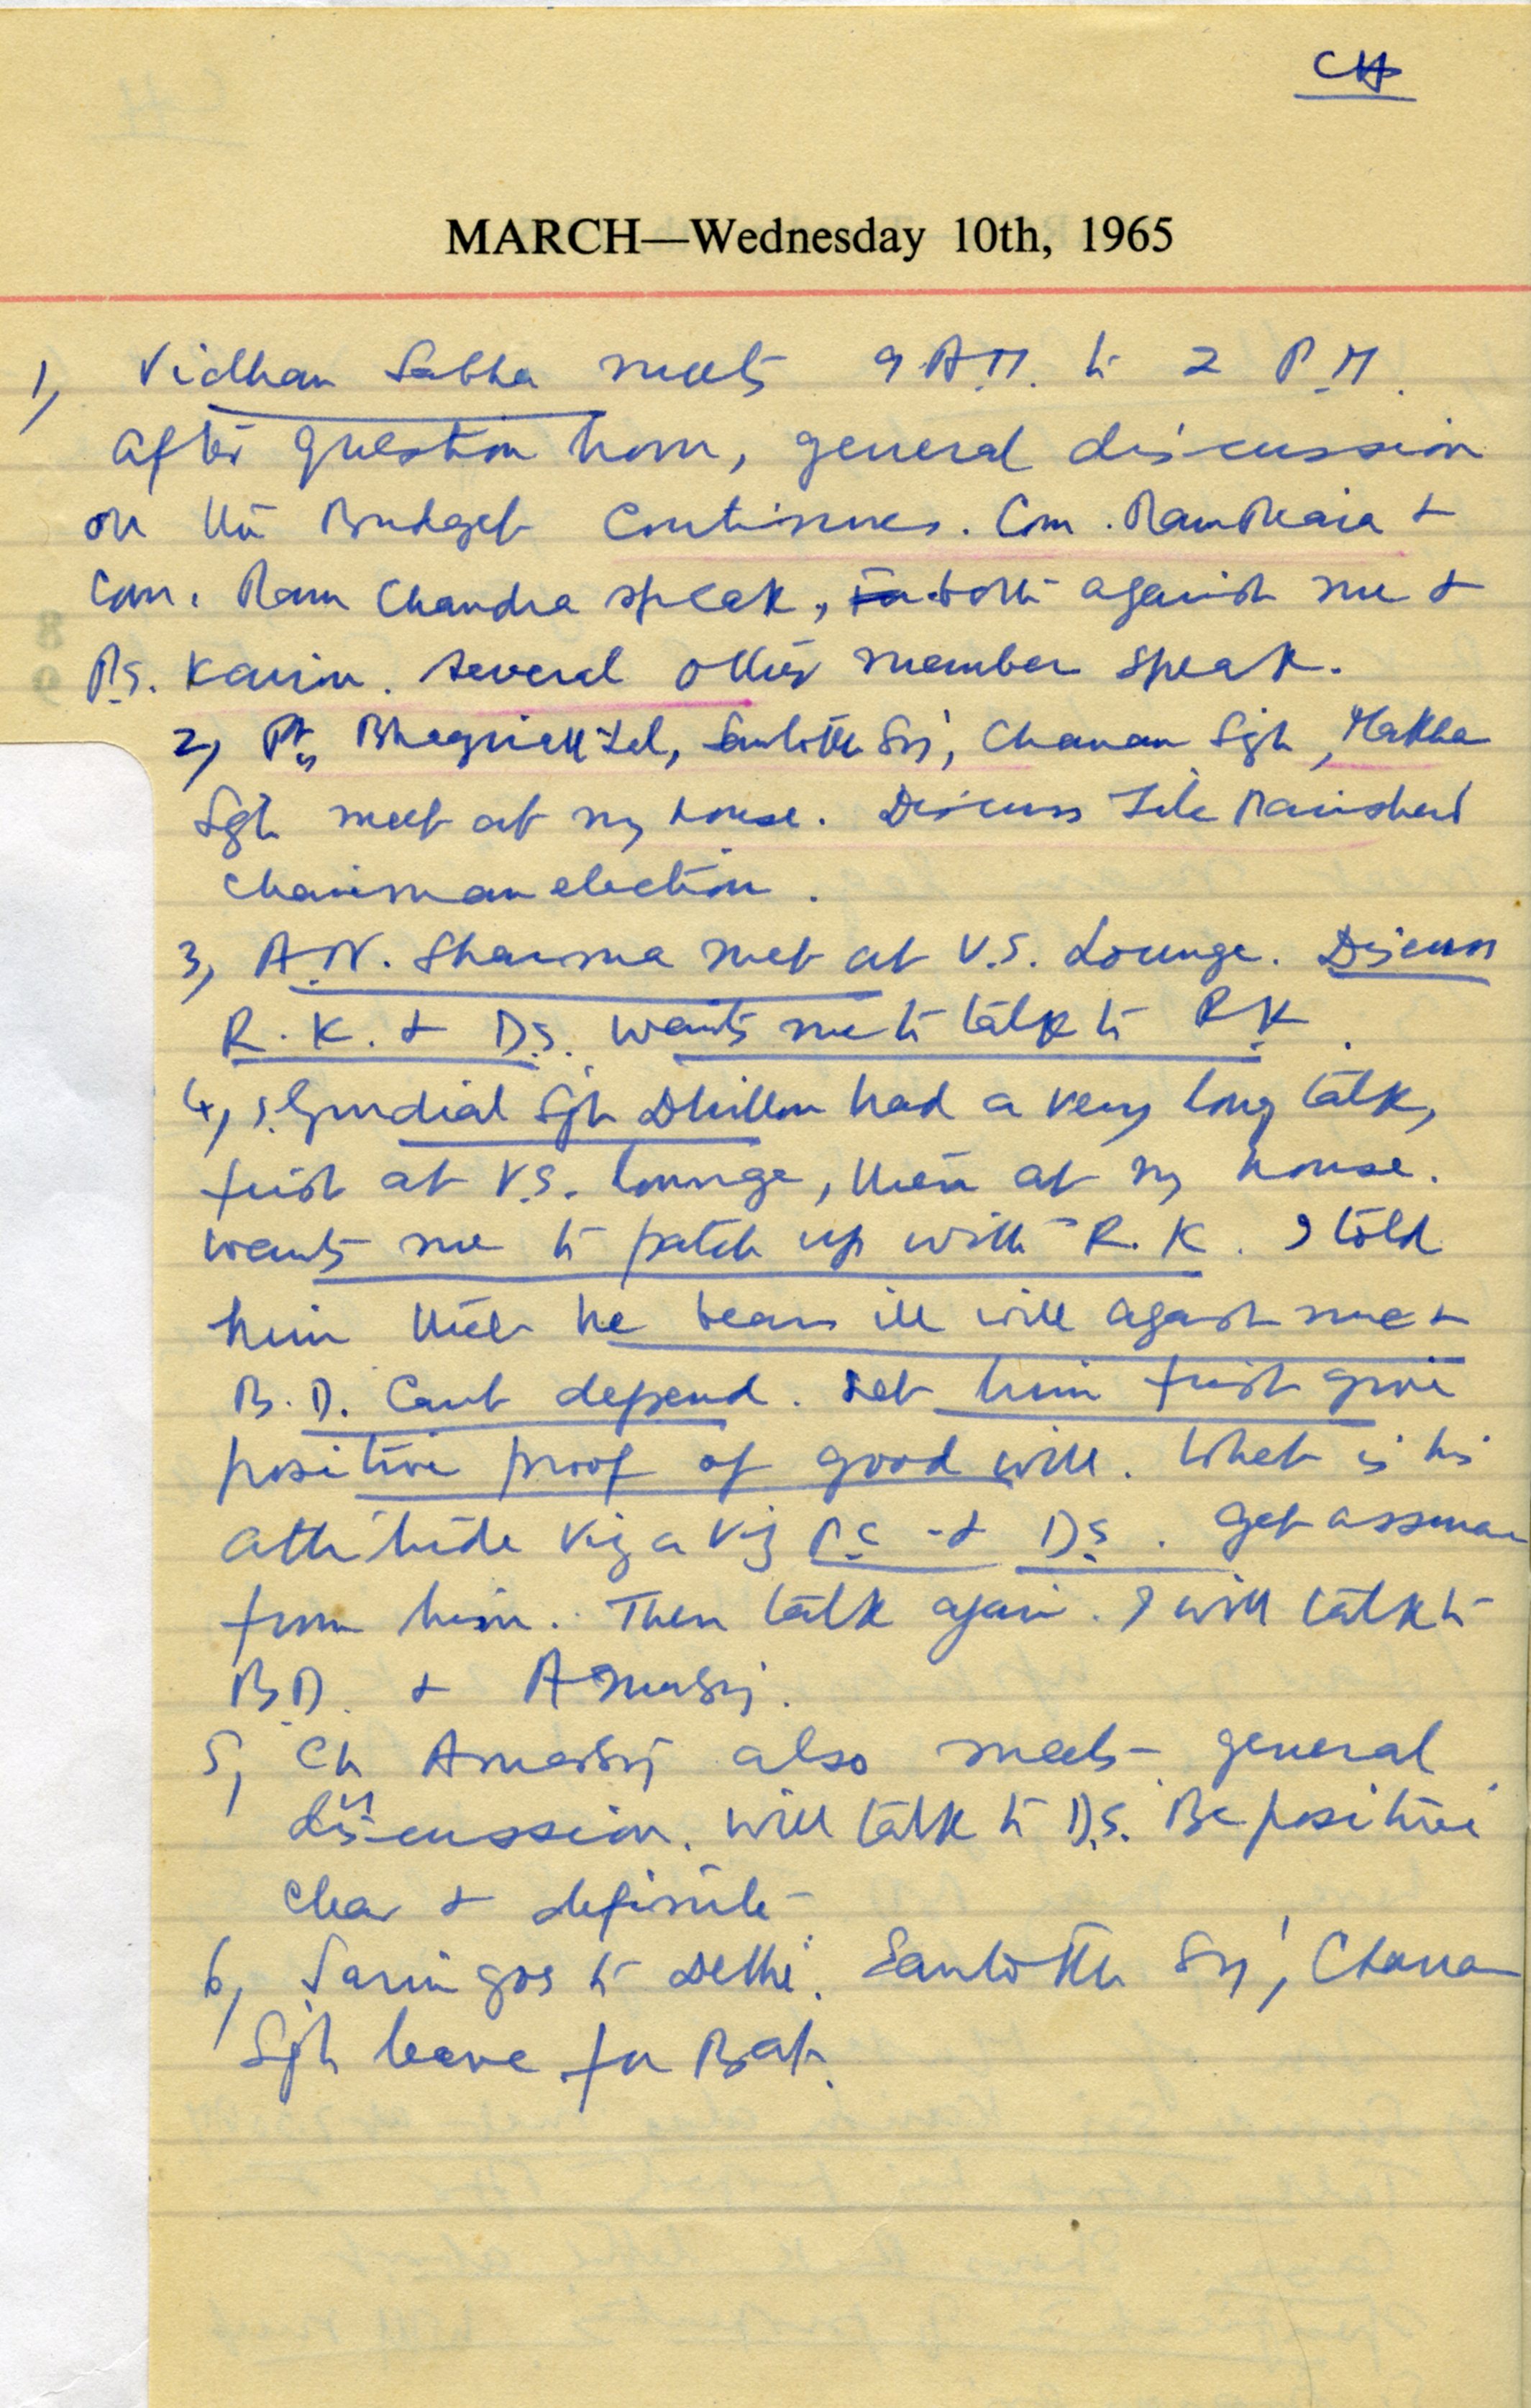 CH
MARCH—Wednesday 10th, 1965
1, Vidhan Sabha meets 9 A.M. to 2 P.M.
After question hour, general discussion
on the Budget continues. Com. Ram Piara +
Com. Ram Chandra speak, both against me +
P.S. Kairon. Several other member speak.
2, Pt. Bhagirath Lal, Santokh Sgh, Chanan Sgh, Makhan
Sgh meet at my house. Discuss Zila Parishad
Chairman election.
3, A.N. Sharma met at V.S. Lounge. Discuss
R.K. + D.S. wants me to talk to R.K.
4, S. Gurdial Sgh Dhillon had a very long talk,
first at V.S. Lounge, then at my house.
wants me to patch up with R.K. I told
him that he bears ill will against me +
B.D. Cant depend. Let him first give
positive proof of good will. What is his
attitude viz a viz P.C + D.S. Get assurance
from him. Then talk again. I will talk to
B.D. + Amar Sgh.
5, Ch Amar Sgh also meets general
discussion. will talk to D.S. Be positive
clear + definite
6, Sarin goes to Delhi. Santokh Sgh, Chanan
Sgh leave for Bat.